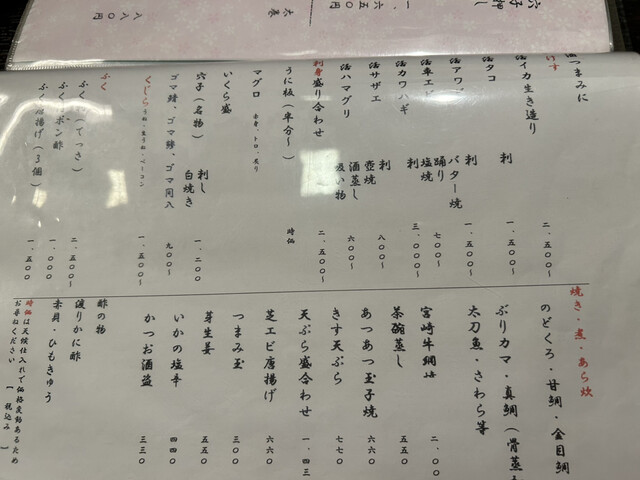 六五〇円
太巻
八八〇円
おつまみに
活イカ生き造り 二、五〇〇〜
活タコ 刺 一、五〇〇〜
活アワビ 刺 バター焼 一、五〇〇〜
活車エビ 踊り 塩焼 七〇〇〜
活カワハギ 刺 三、〇〇〇〜
活サザエ 刺 壺焼 八〇〇〜
活ハマグリ 酒蒸し 吸い物 六〇〇〜
刺身盛り合わせ 二、五〇〇〜
うに板(半分〜) 時価
マグロ 赤身、トロ、炙り
いくら盛
穴子(名物) 刺し 白焼き 一、二〇〇
ゴマ鯖、ゴマ鯵、ゴマ間八 九〇〇〜
くじら ベーコン 一、五〇〇〜
ふく
(てっさ) 二、五〇〇
ポン酢 一、〇〇〇
揚げ(3個) 一、五〇〇
焼き・煮・あら炊
のどくろ・甘鯛・金目鯛
ぶりカマ・真鯛(骨蒸
太刀魚・さわら等
宮崎牛網焼 二、〇〇
茶碗蒸し 五五〇
あつあつ玉子焼 六六〇
きす天ぷら 七七〇
天ぷら盛合わせ 一、四三
芝エビ唐揚げ 六六〇
つまみ玉 三〇〇
芽生姜 五五〇
いかの塩辛 四四〇
かつお酒盗 三三〇
酢の物
渡りかに酢
赤貝・ひもきゅう
時価は天候仕入れで価格変動あるため
お尋ねください 【税込み】